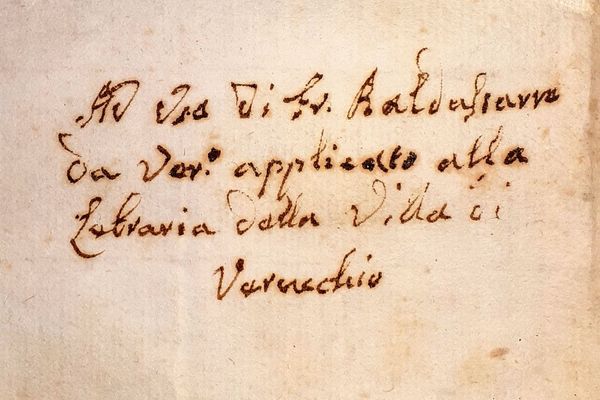 AD Uso di Fr. Baldassarre
da Ver.º applicato alla
Lebraria della Villa di
Verucchio